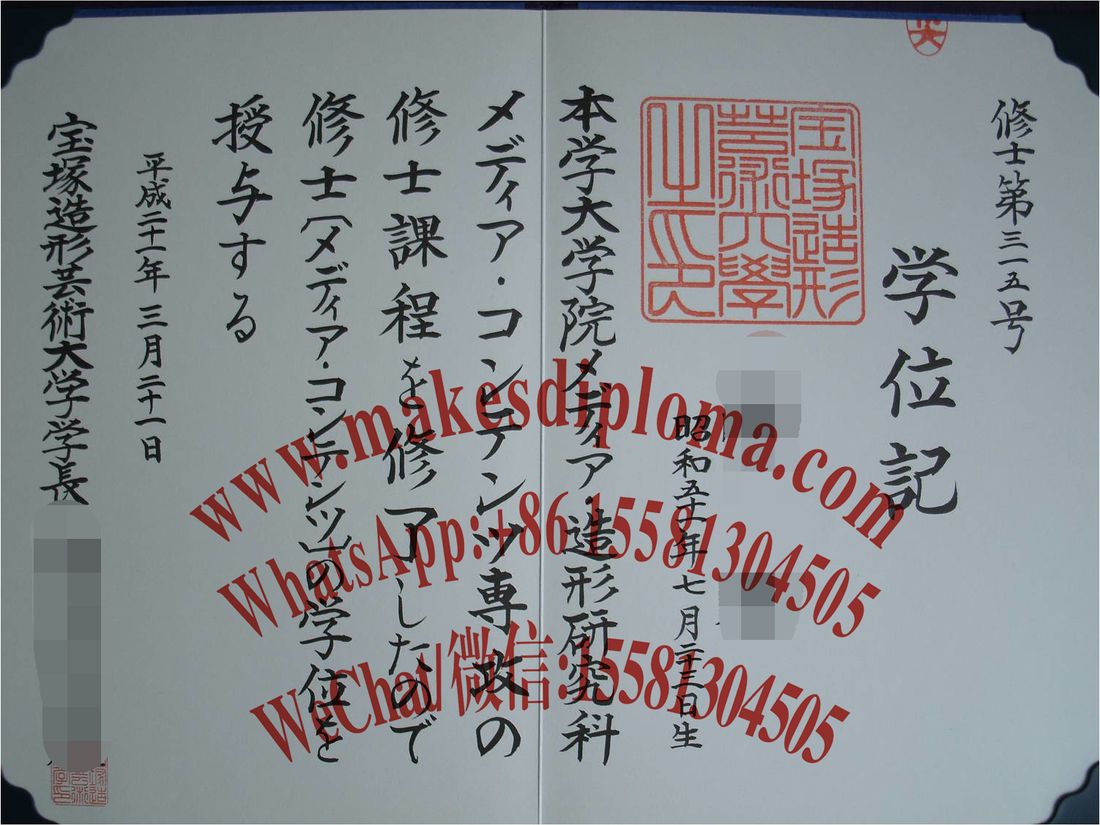 修士第三一五号
学位記
宝塚造形
芸術大學
之印
昭和五十年七月二十三日生
本学大学院メディア・造形研究科
メディア・コンテンツ専攻の
修士課程を修了したので
修士〔メディア・コンテンツ〕の学位を
授与する
平成二十一年三月二十一日
宝塚造形芸術大学学長
www.makesdiploma.com
WhatsApp:+86 15581304505
WeChat/微信:15581304505